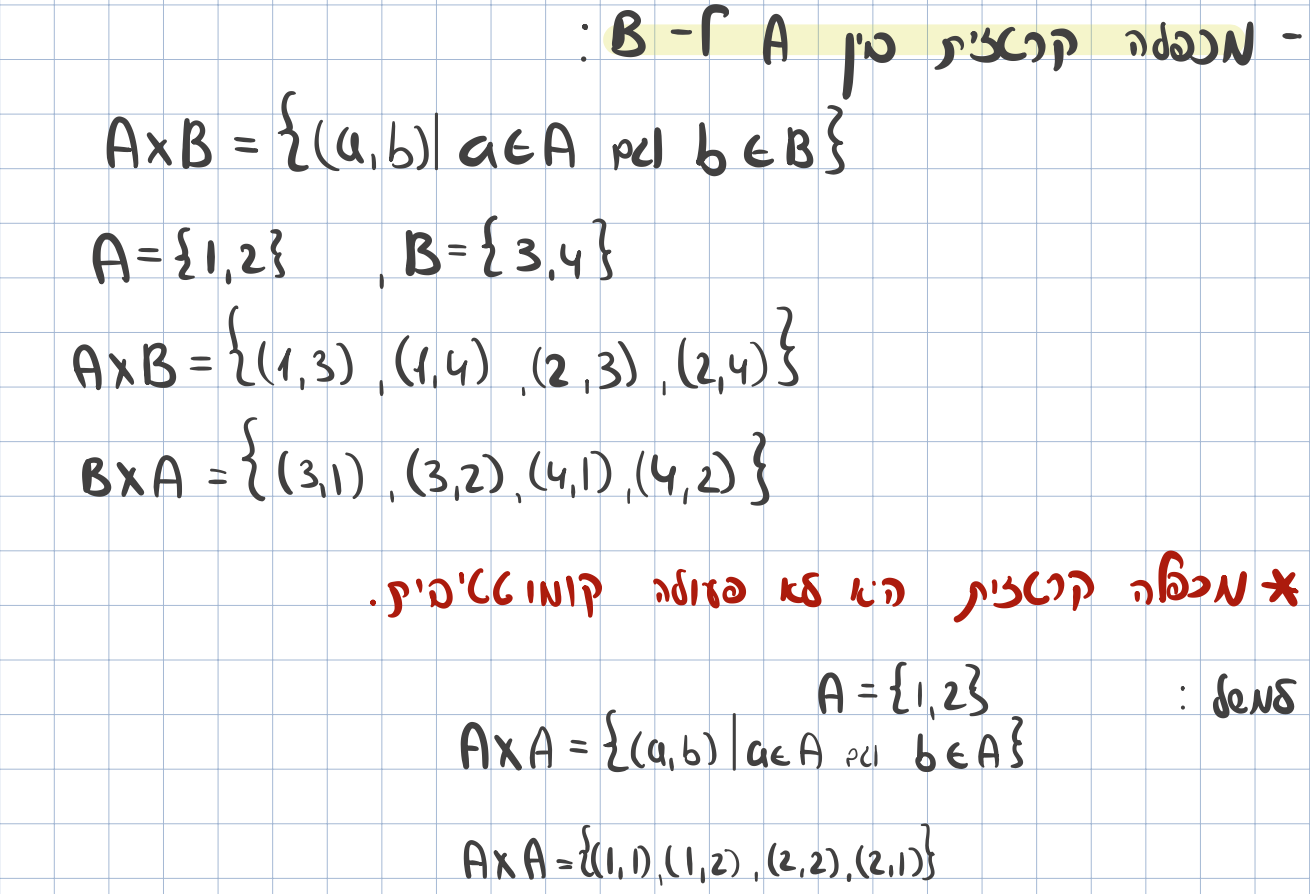 - מכפלה קרטזית בין A ל- B :
A×B = {(a,b)| a∈A וגם b∈B}
A={1,2} , B={3,4}
A×B = {(1,3) , (1,4) , (2,3) , (2,4)}
B×A = {(3,1) , (3,2) , (4,1) , (4,2)}
* מכפלה קרטזית היא לא פעולה קומוטטיבית.
למשל : A = {1,2}
A×A = {(a,b) | a∈A וגם b∈A}
A×A = {(1,1) , (1,2) , (2,2) , (2,1)}